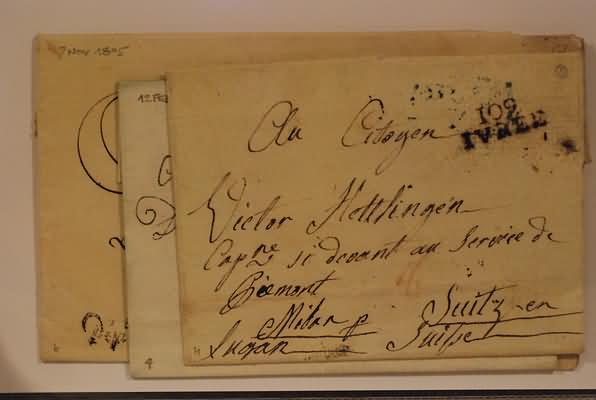 7 Nov 1805
12 FE
105
IVREE
Au Citoyen
Victor Hettlingen
Capne si devant au Service de
Piemont
Milan p
Suitz en
Lugan
Suisse